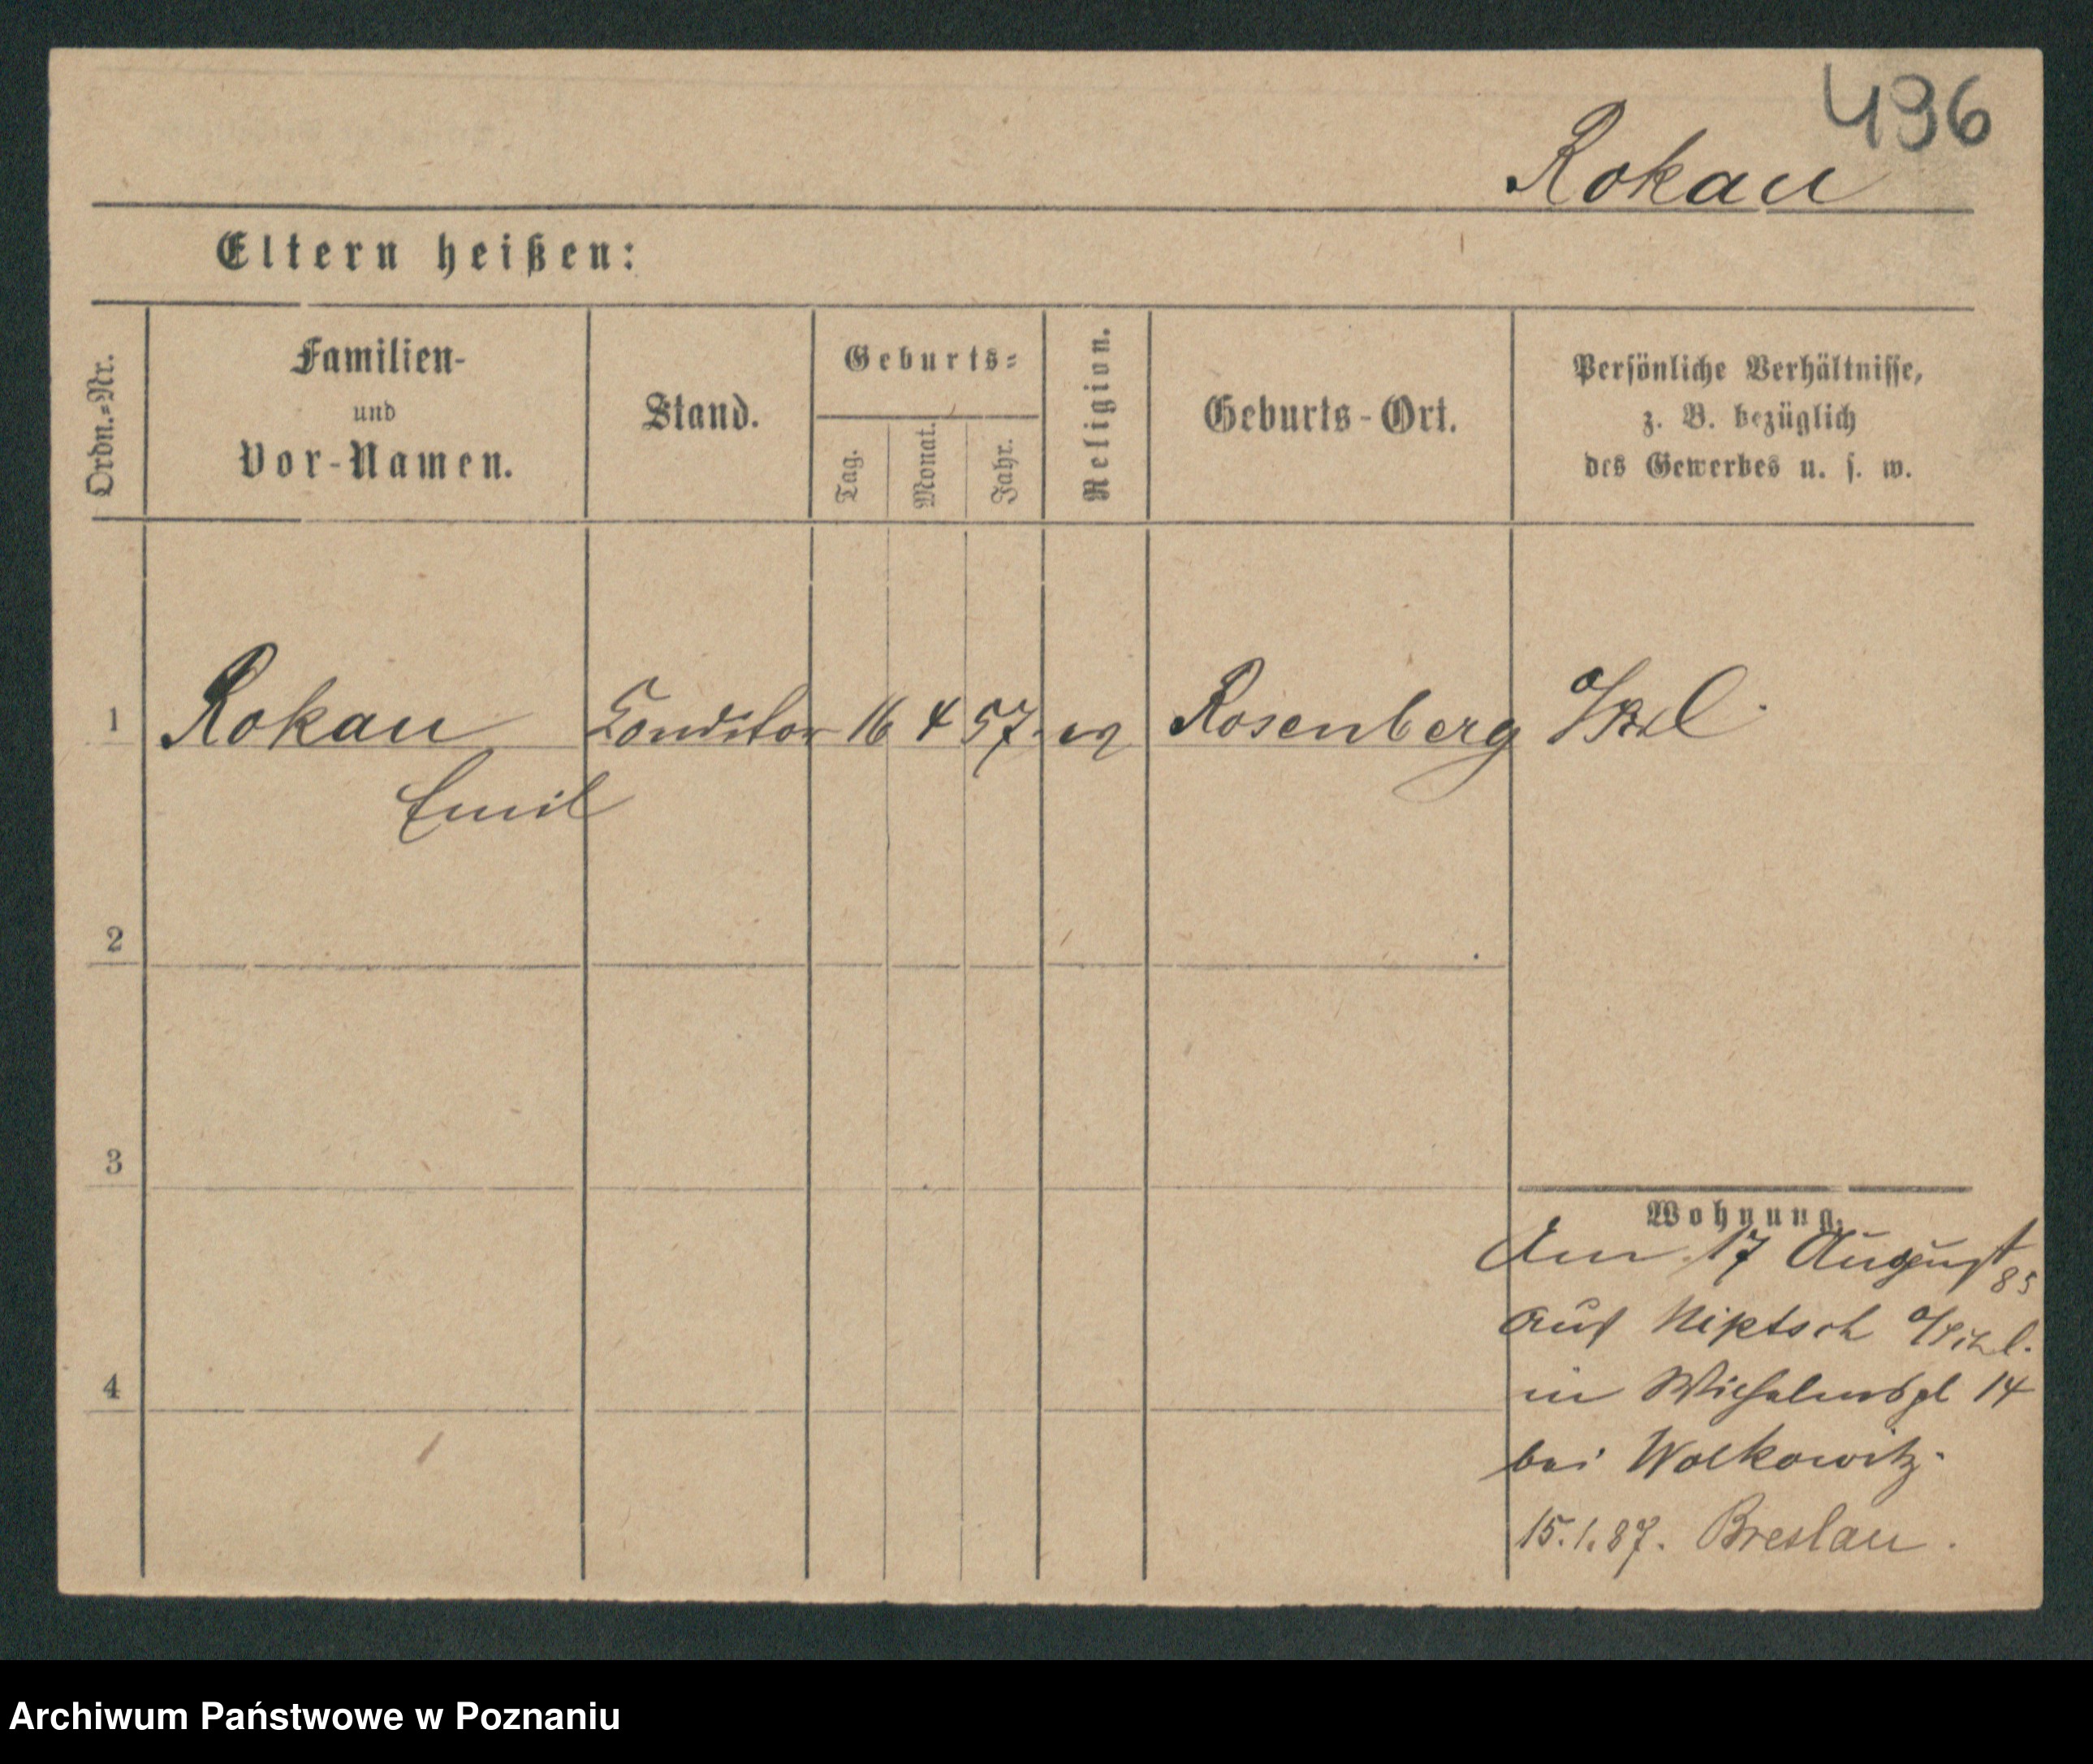 496
Rokau
Eltern heißen:
Ordn.=Nr.
Familien-
und
Vor-Namen.
Stand.
Geburts=
Tag.
Monat.
Jahr.
Religion.
Geburts-Ort.
Persönliche Verhältnisse,
z. B. bezüglich
des Gewerbes u. s. w.
1 Rokau Conditor 16 4 57. ev Rosenberg
Emil
2
3
4
Wohnung.
Am 17 August 85
aus
in Wilhelmspl 14
bei Wolkowitz.
15.1.87. Breslau.
Archiwum Państwowe w Poznaniu